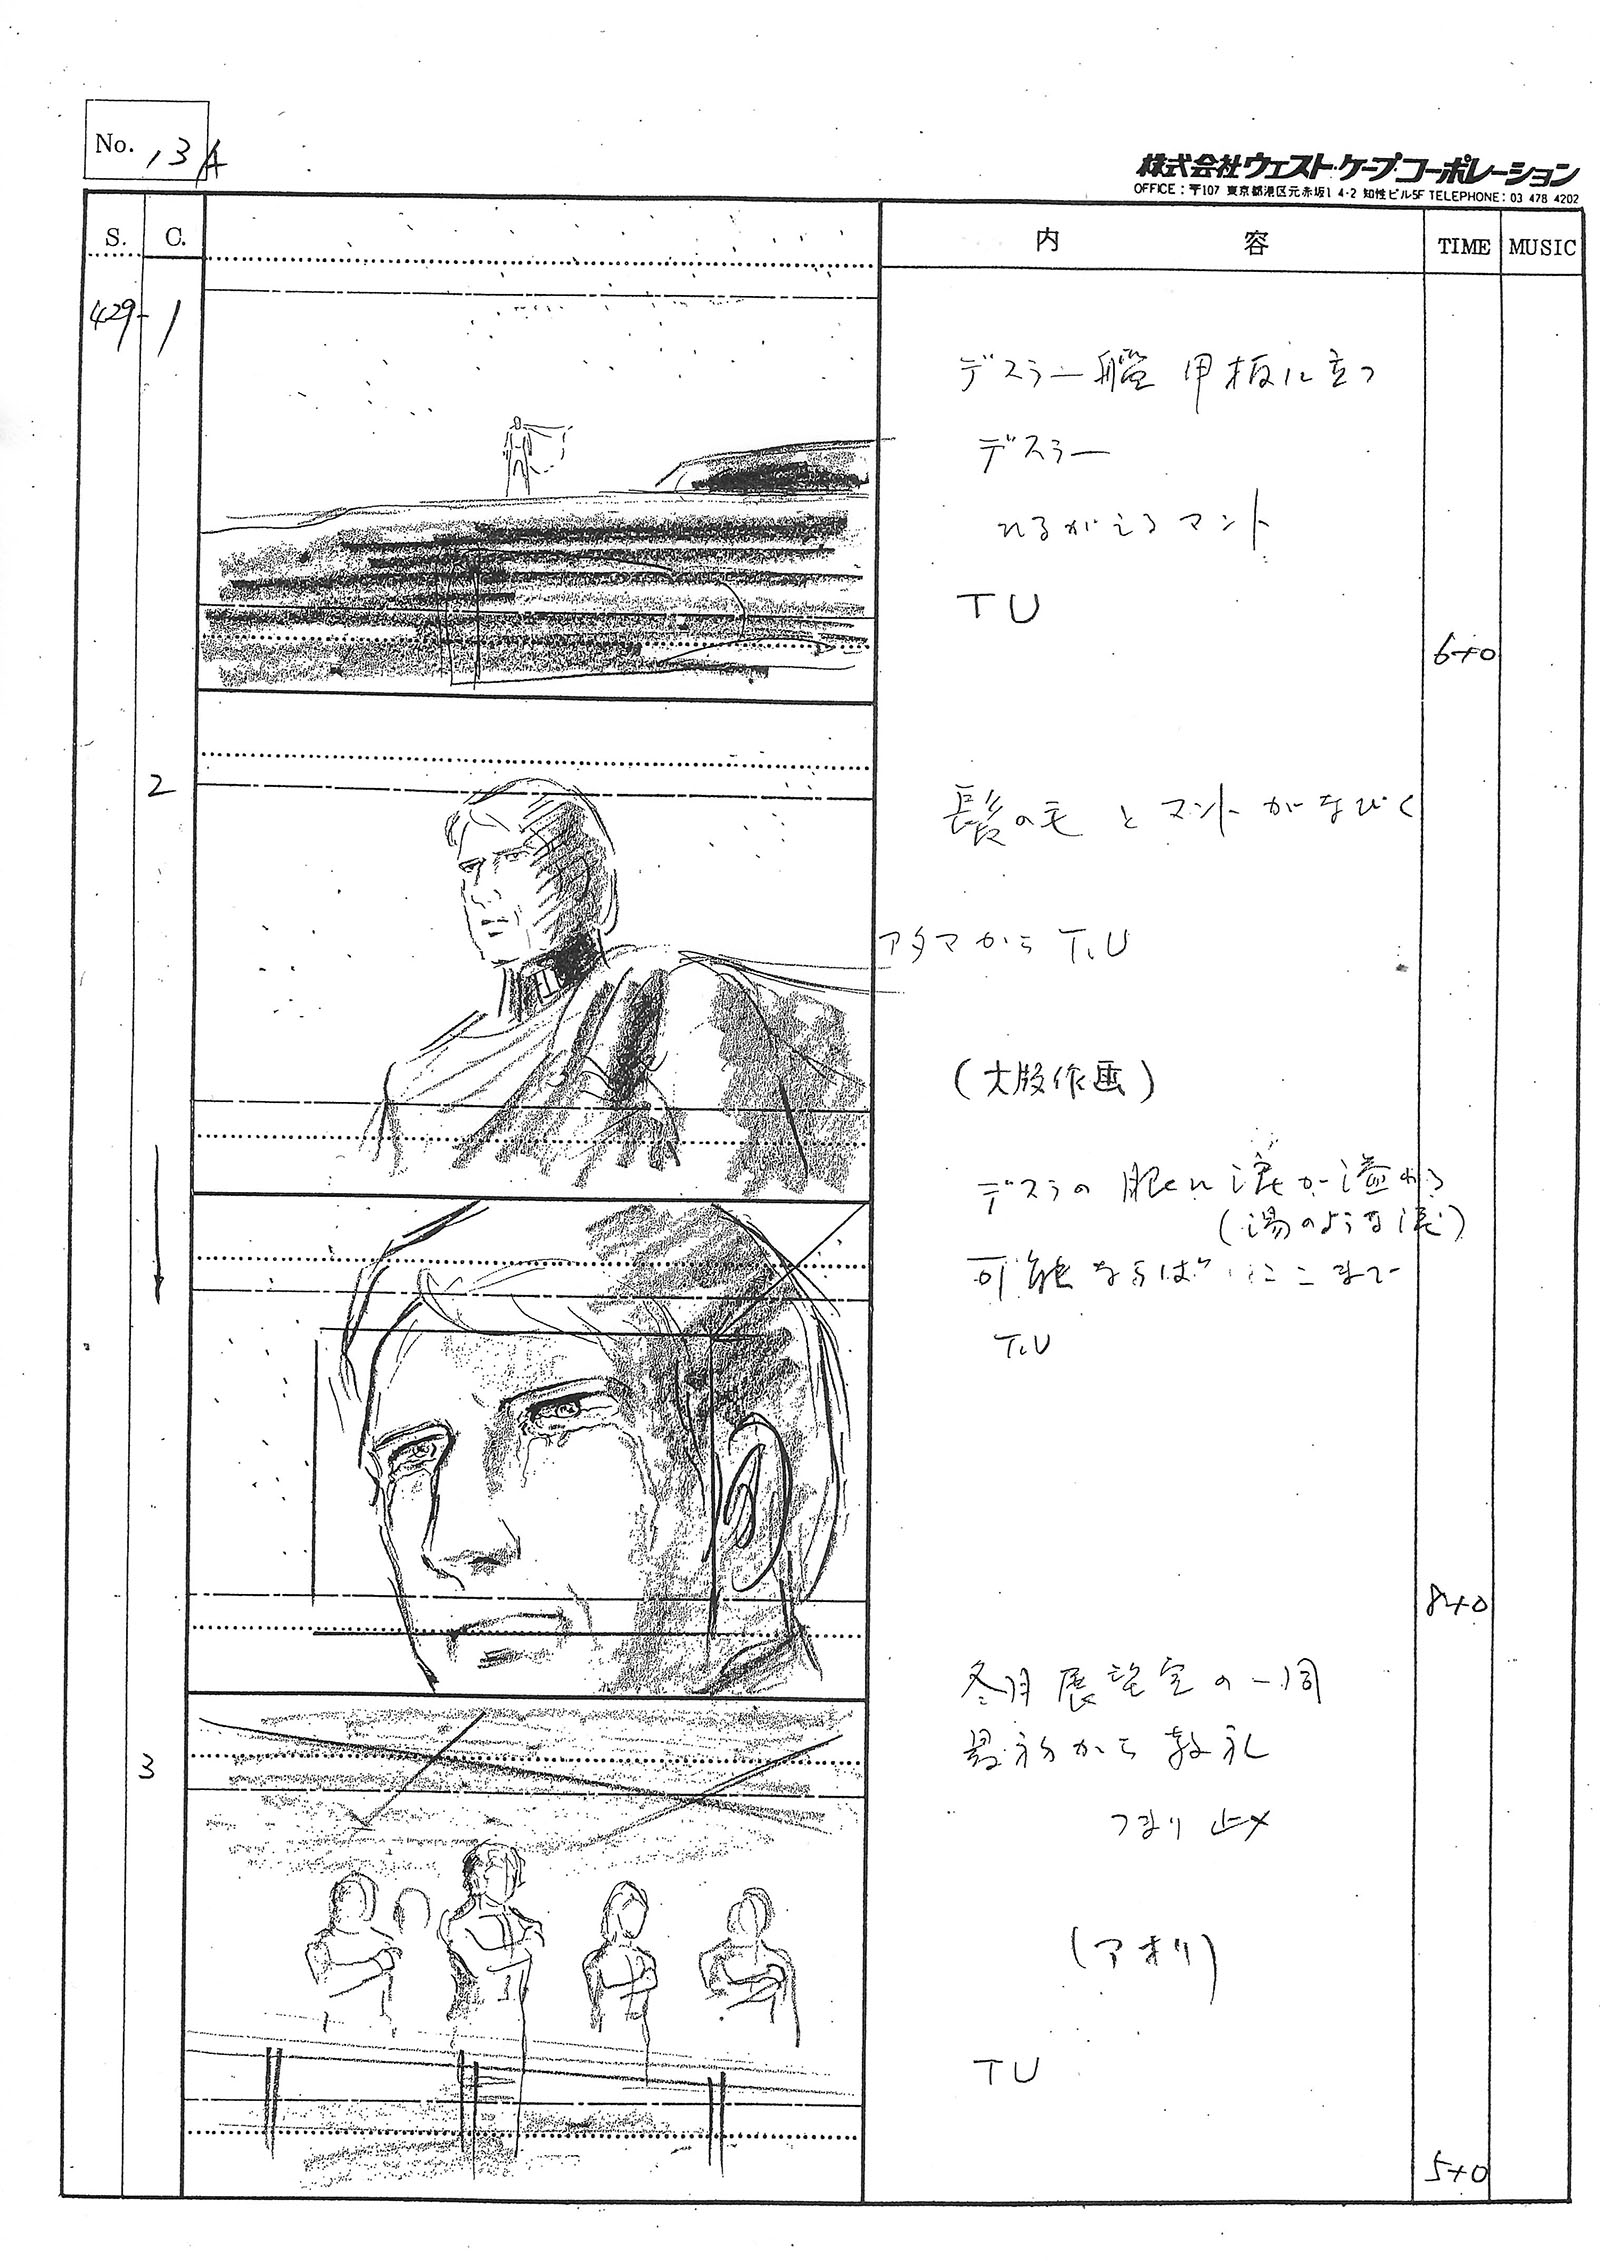 No. 13A
株式会社ウェスト・ケープ・コーポレーション
OFFICE：〒107 東京都港区元赤坂1 4-2 知性ビル5F TELEPHONE：03 478 4202
S. C. 内 容 TIME MUSIC
429-1
デスラー艦 甲板に立つ
デスラー
ひるがえるマント
TU
6+0
2
髪の毛 と マントがなびく
アタマから T.U
(大版作画)
デスラの眼に涙が溢れる
(湯のような涙)
可能ならば ここまで
T.U
8+0
3
冬月 展望室の一同
最初から敬礼
つまり 止メ
(アオリ)
TU
5+0